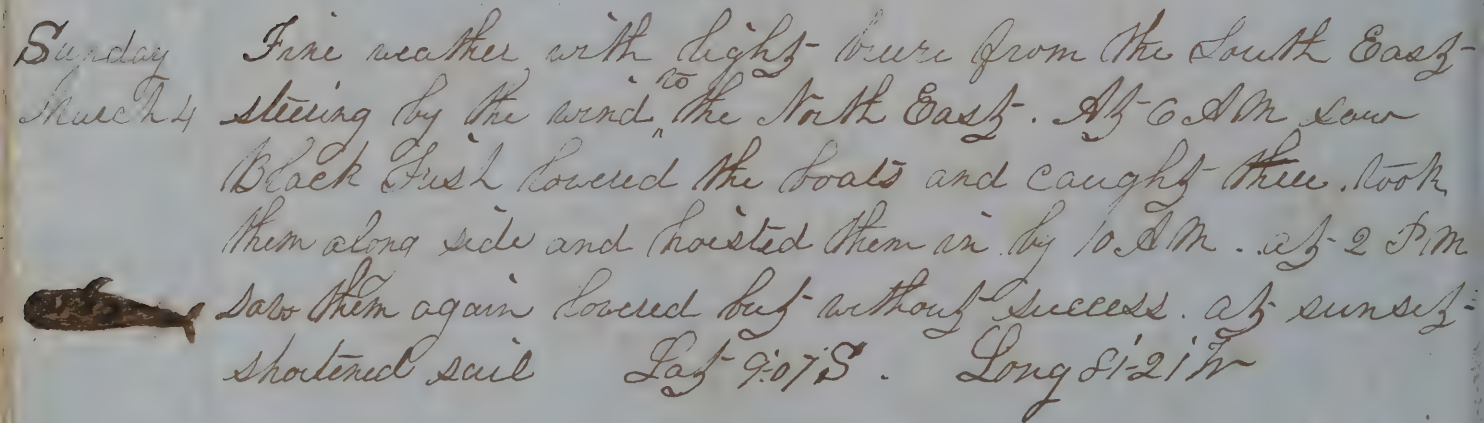 Sunday Fine weather with light breeze from the South East
March 4 steering by the wind to the North East. At 6 AM saw
Black Fish lowered the boats and caught three. took
them along side and hoisted them in by 10 AM. at 2 PM
saw them again lowered but without success. at sunset
shortened sail Lat 9·07 S. Long 81-21 W